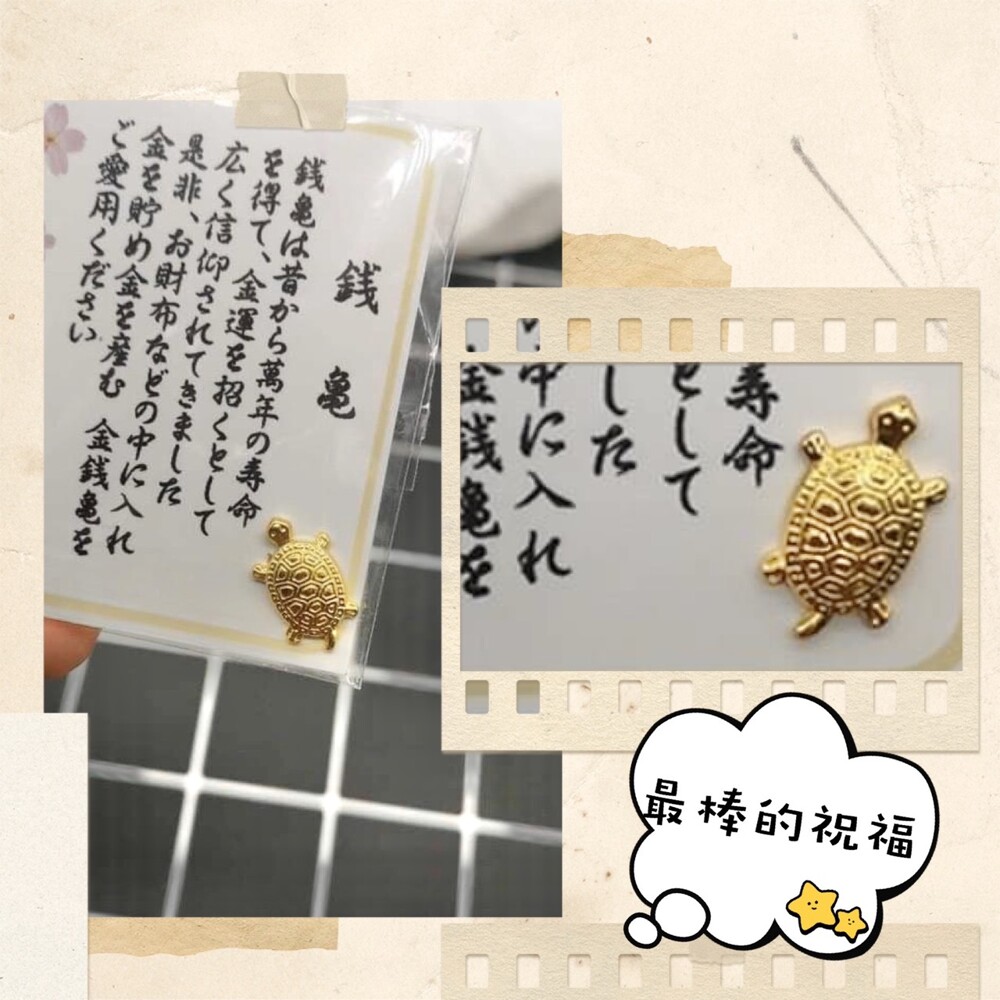 銭亀
銭亀は昔から萬年の寿命
を得て、金運を招くとして
広く信仰されてきました
是非、お財布などの中に入れ
金を貯め金を産む 金銭亀を
ご愛用ください
寿命
として
した
中に入れ
金銭亀を
最棒的祝福